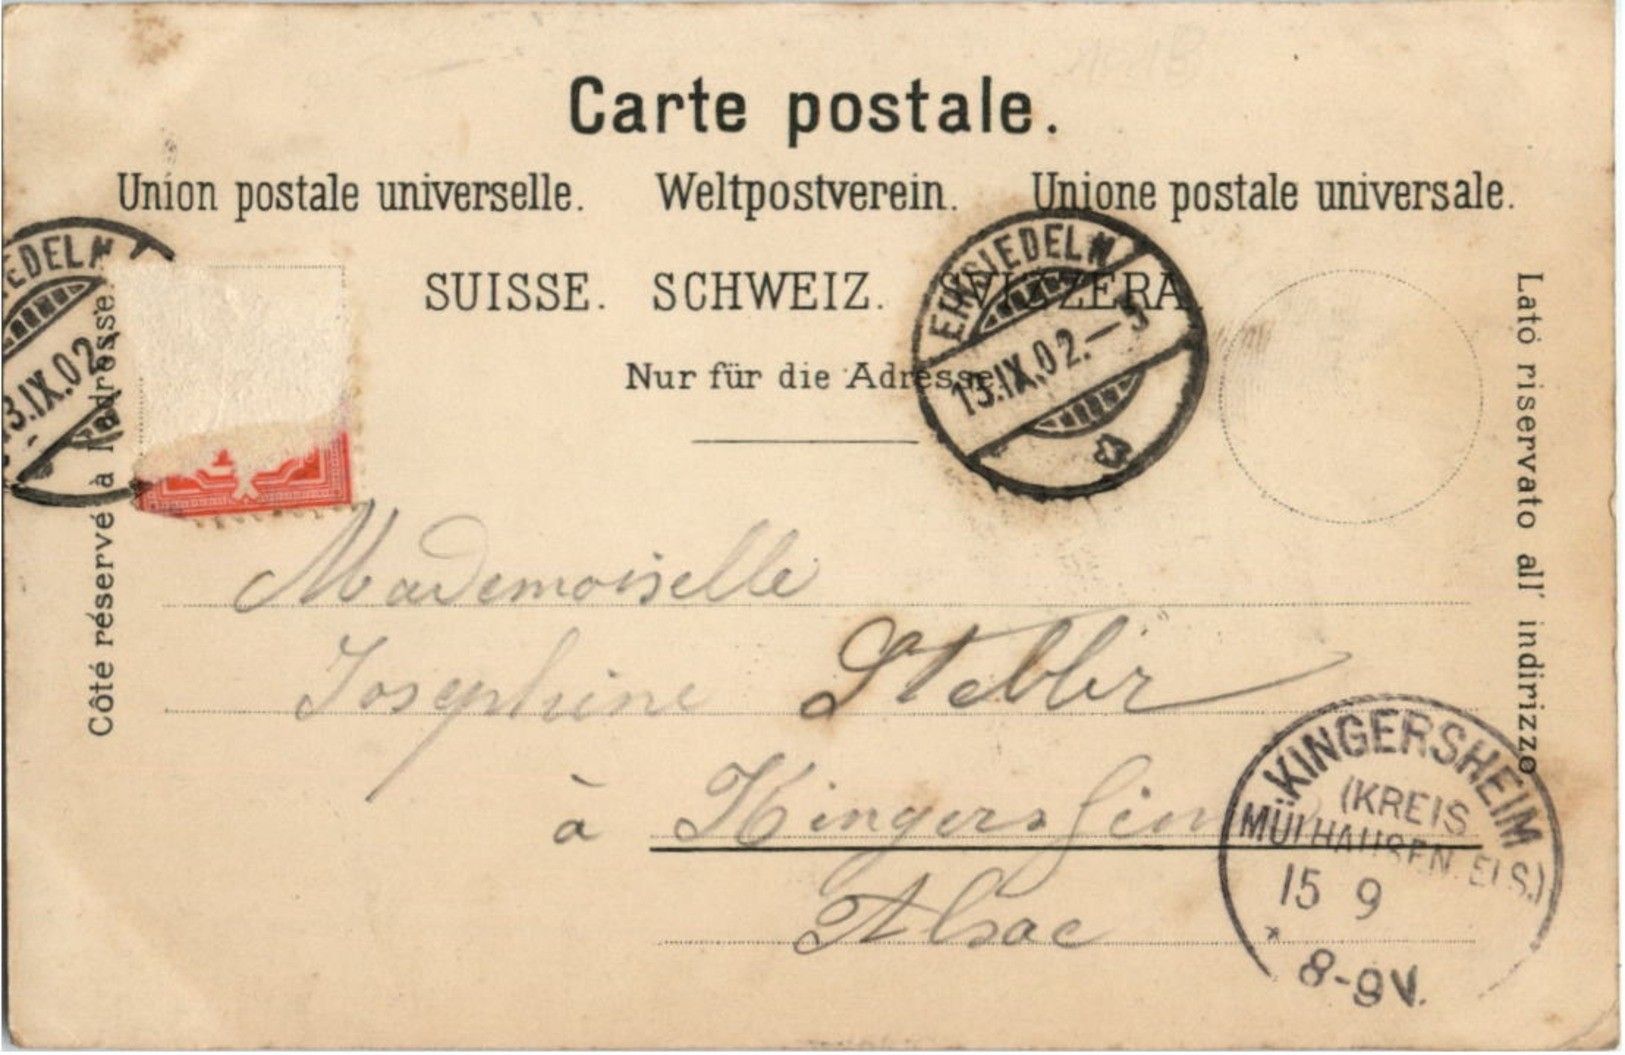 Carte postale.
Union postale universelle. Weltpostverein. Unione postale universale.
SUISSE. SCHWEIZ. SVIZZERA.
Nur für die Adresse.
EINSIEDELN
13.IX.02.–5
EDELN
3.IX.02.–
Côté réservé à l'adresse.
Lato riservato all' indirizzo
Mademoiselle
Josephine
à Kingersheim
Alsace
KINGERSHEIM
(KREIS
MÜLHAUSEN. ELS.)
15 9
* 8-9V.